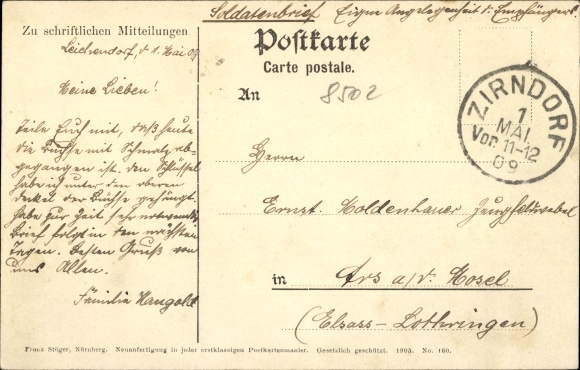 Soldatenbrief Eigne Angelegenheit d. Empfängers.
Zu schriftlichen Mitteilungen
Leichendorf, d. 1. Mai 09
Meine Lieben!
Teile Euch mit, daß heute
die Büchse mit Schmalz ab-
gegangen ist. den Schlüssel
habe ich unter den oberen
deckel der Büchse gehängt.
habe zur Zeit sehr
Brief folgt in den nächsten
Tagen. Besten Gruß von
uns Allen.
Familie Mangold
Postkarte
Carte postale.
An
8502
ZIRNDORF
1
MAI.
Vor. 11-12
09
Herrn
Ernst Moldenhauer Zeugfeldwebel
in Ars a/d. Mosel
(Elsass-Lothringen)
Franz Stöger, Nürnberg. Neuanfertigung in jeder erstklassigen Postkartenmanier. Gesetzlich geschützt. 1905. No. 160.